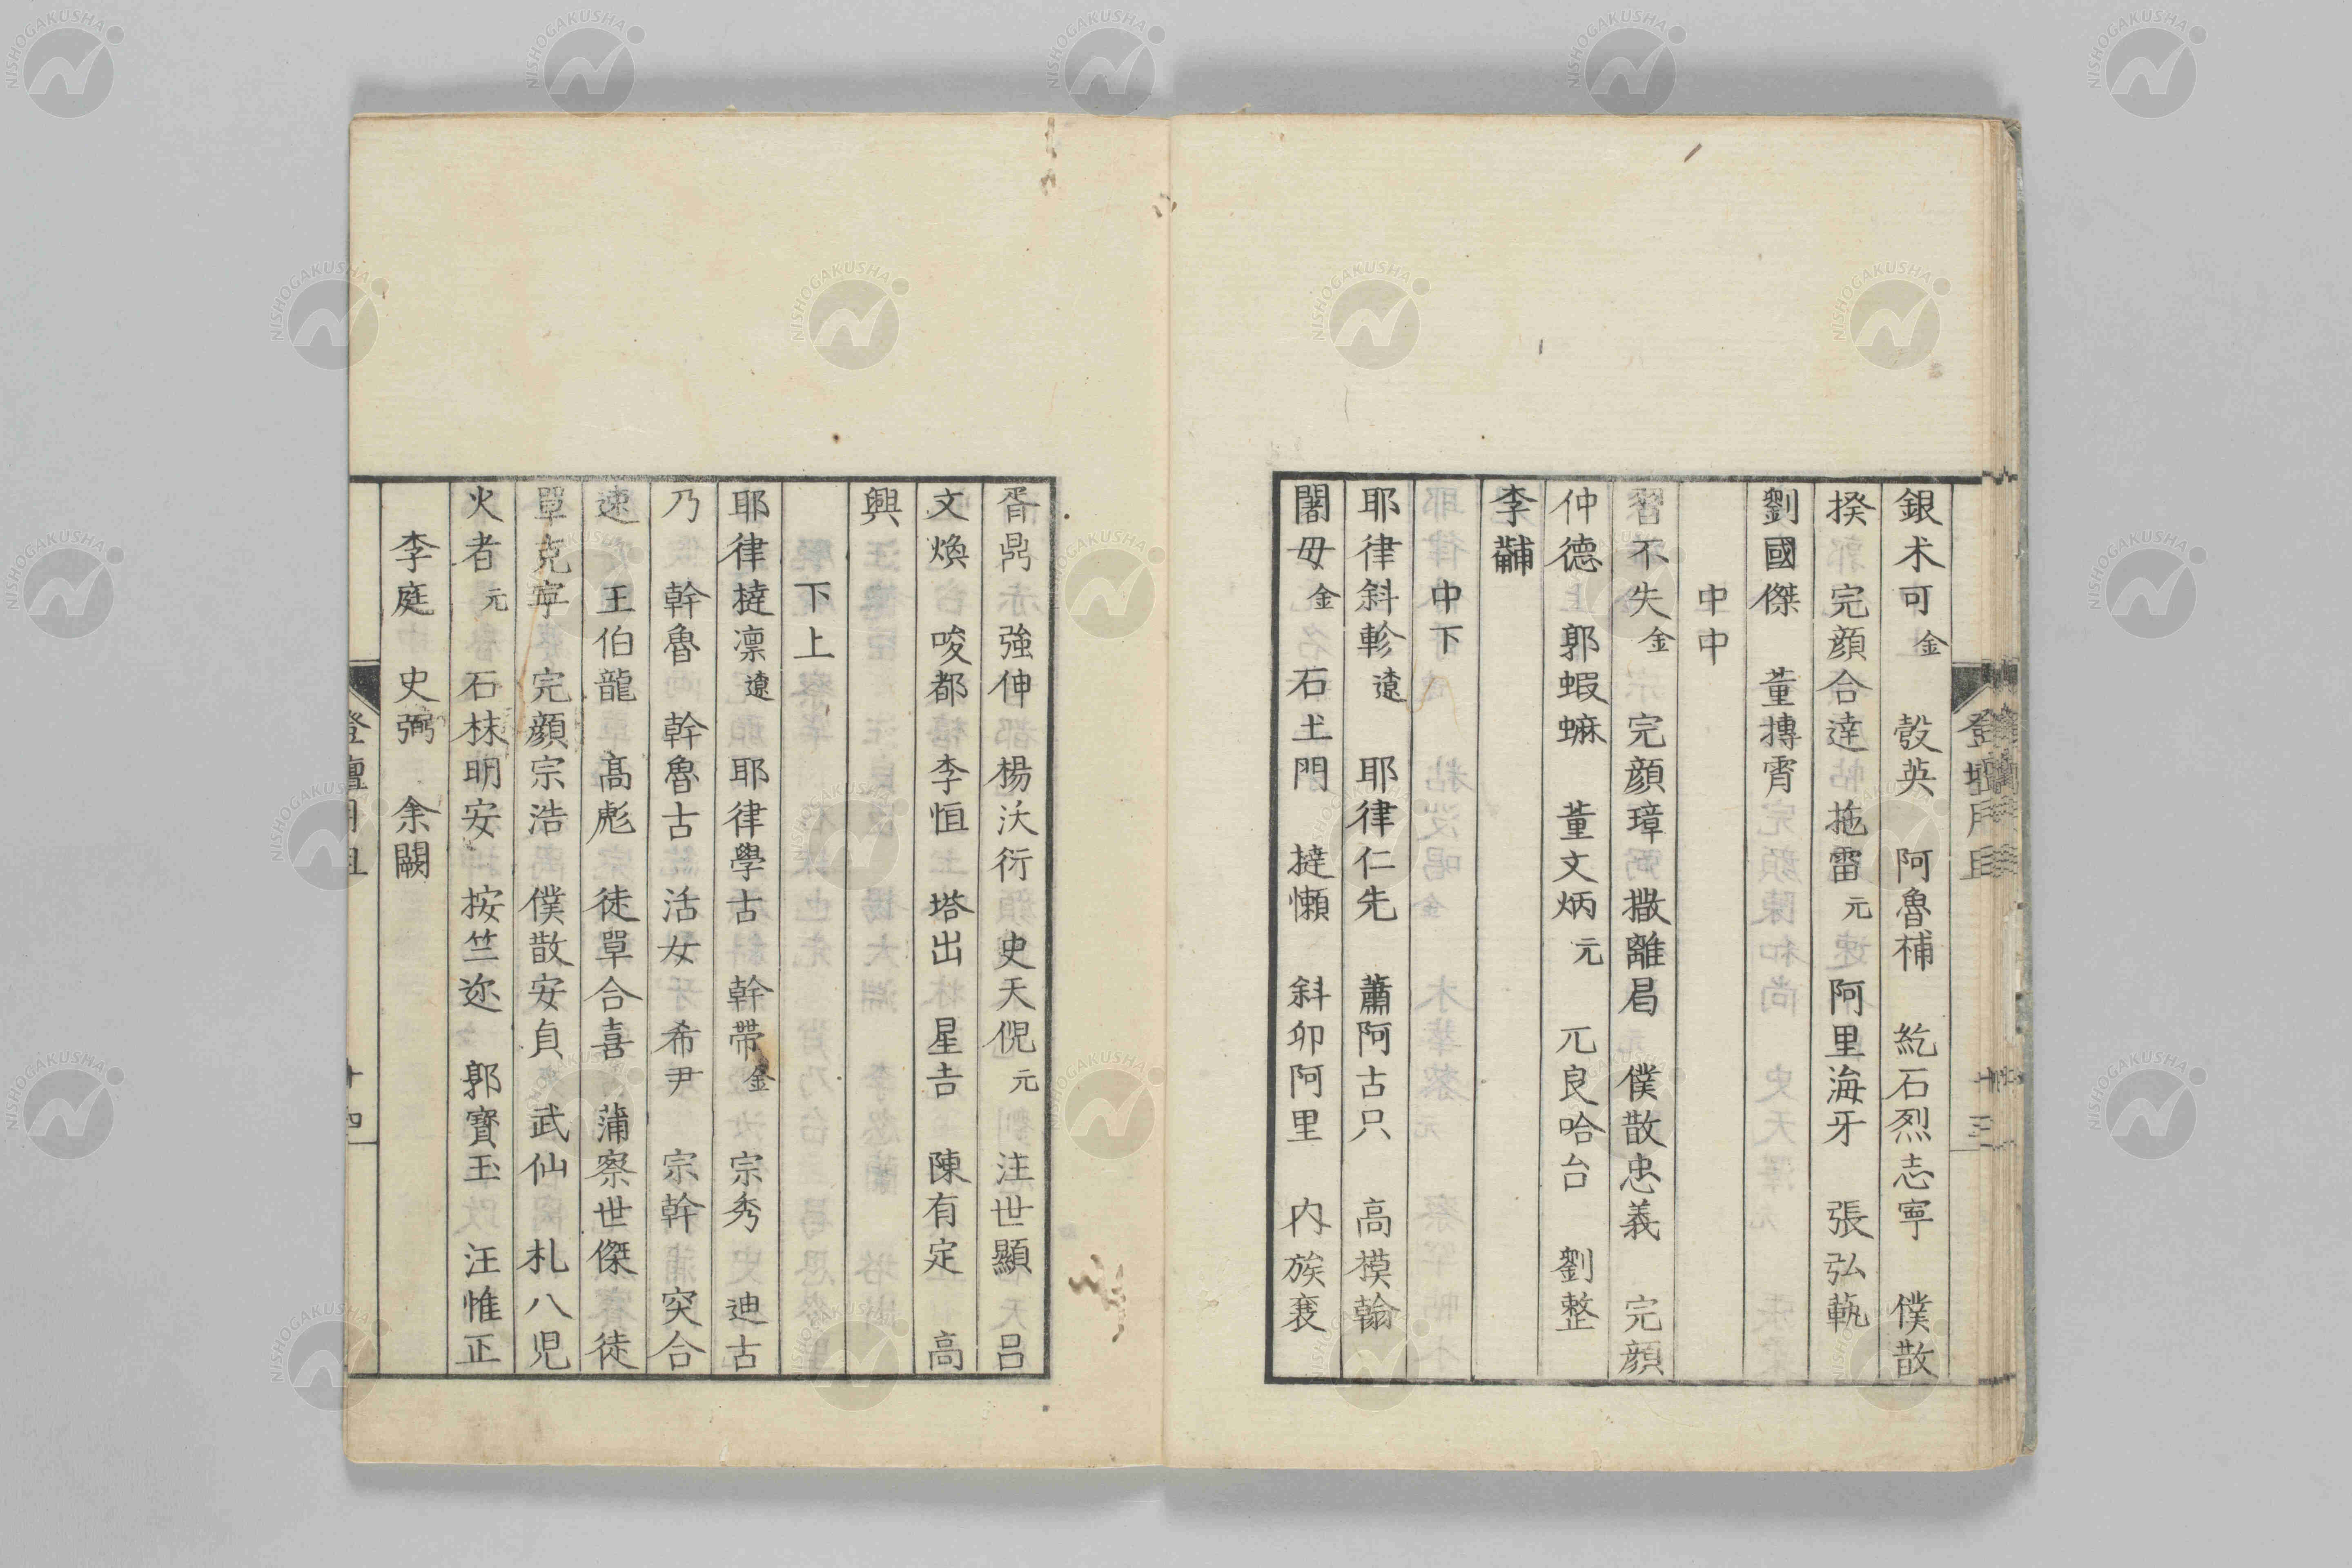 銀术可金　彀英　阿魯補　紇石烈志寧　僕散
揆　完顔合達　拖雷元　阿里海牙　張弘範
劉國傑　董摶霄
中中
習不失金　完顔璋　撒離曷　僕散忠義　完顔
仲德　郭蝦䗫　董文炳元　兀良哈台　劉整
李黼
中下
耶律斜軫遼　耶律仁先　蕭阿古只　高模翰
闍母金　石土門　撻懶　斜卯阿里　内族襄
胥鼎　強伸　楊沃衍　史天倪元　汪世顯　呂
文煥　唆都　李恒　塔出　星吉　陳有定　高
興
下上
耶律撻凛遼　耶律學古　斡帶金　宗秀　迪古
乃　斡魯　斡魯古　活女　希尹　宗幹　突合
速　王伯龍　高彪　徒單合喜　蒲察世傑　徒
單克寧　完顔宗浩　僕散安貞　武仙　札八児
火者元　石抹明安　按竺迩　郭寳玉　汪惟正
李庭　史弼　余闕
十四
NISHOGAKUSHA